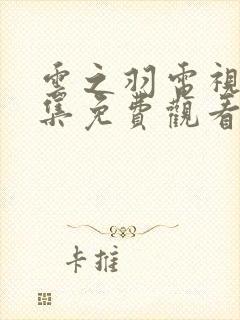 雲之羽電視
集免費觀看
卡推